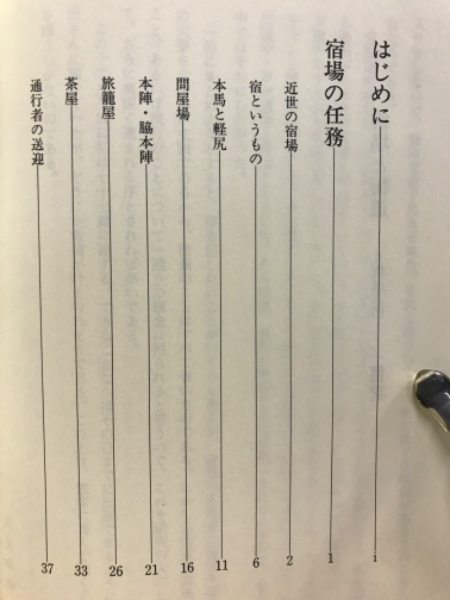 はじめに i
宿場の任務 1
近世の宿場 2
宿というもの 6
本馬と軽尻 11
問屋場 16
本陣・脇本陣 21
旅籠屋 26
茶屋 33
通行者の送迎 37